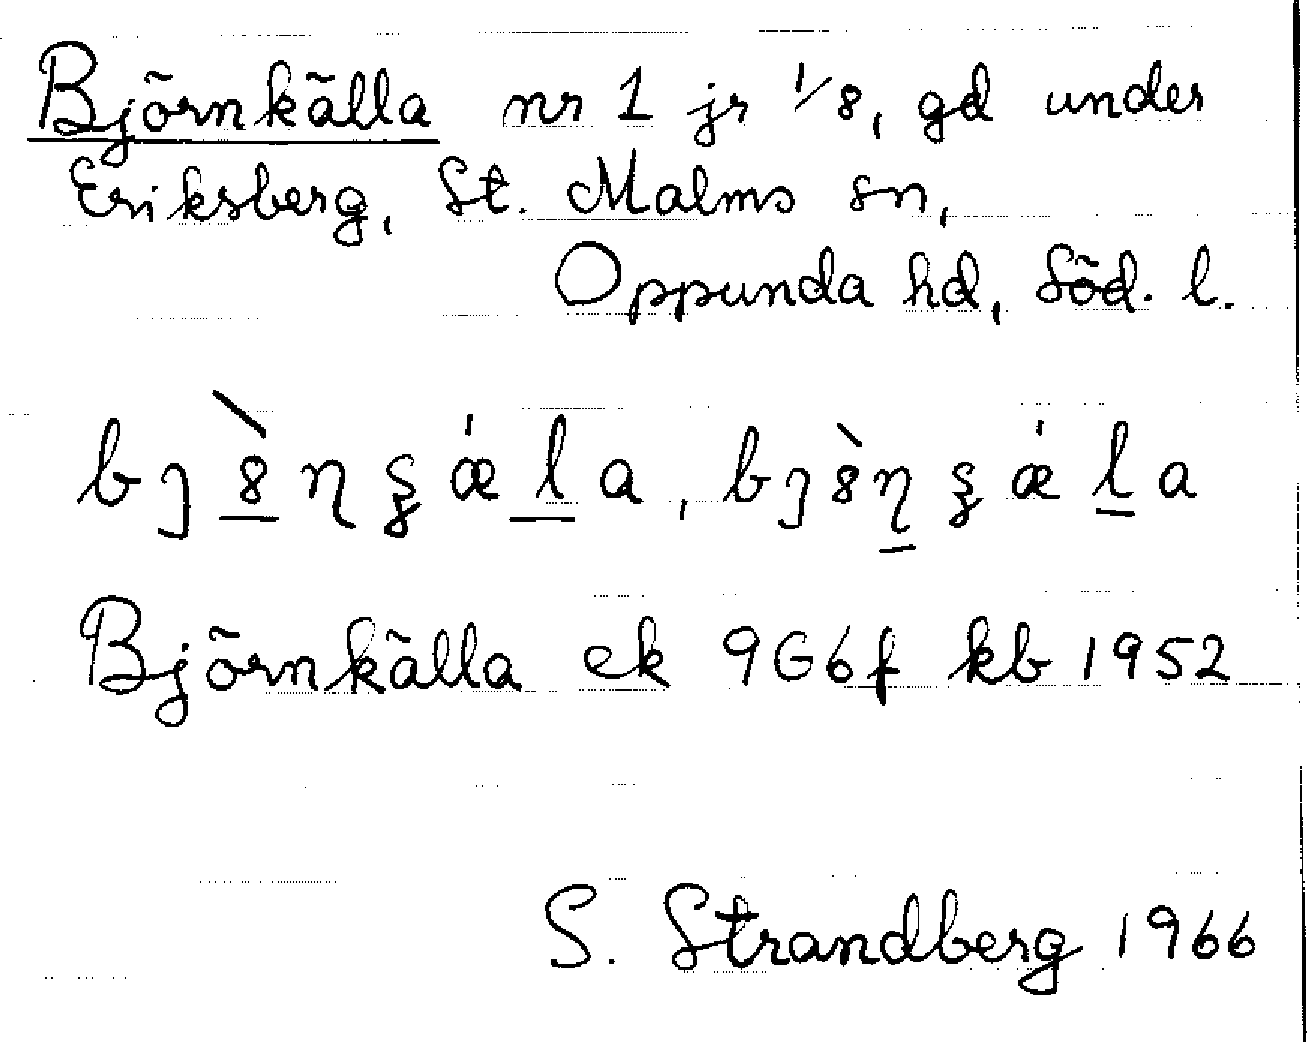 Björnkälla nr 1 jr 1/8, gd under
Eriksberg, St. Malms sn,
Oppunda hd, Söd. l.
Björnkälla ek 9G6f kb 1952
S. Strandberg 1966